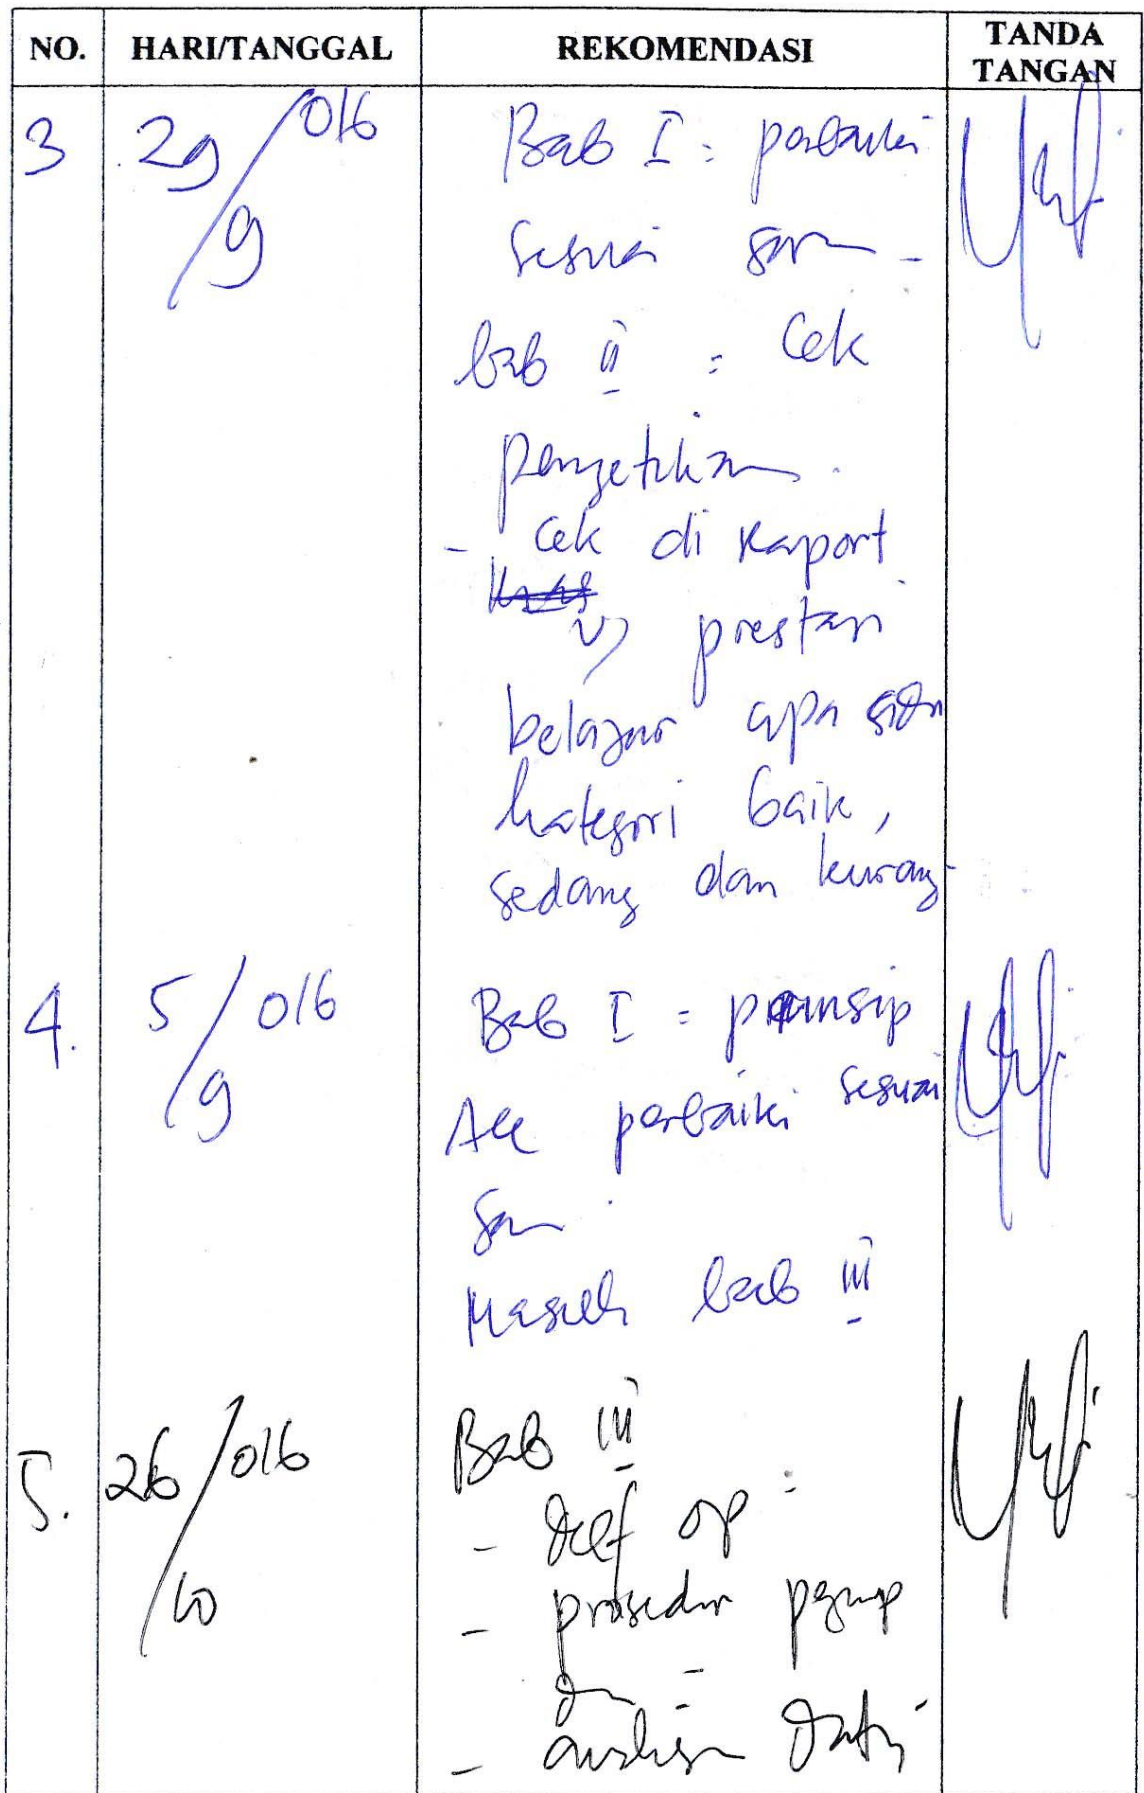 NO. HARI/TANGGAL REKOMENDASI TANDA TANGAN
3 29/9 016 Bab I : perbaiki
sesuai saran
bab II : Cek
pengetikan.
- Cek di Raport
prestasi
belajar apa ada
kategori baik,
sedang dan kurang
4. 5/9 016 Bab I : prinsip
Acc perbaiki sesuai
saran
Masuk bab III
5. 26/10 016 Bab III
- def op
- prosedur
- analisa data